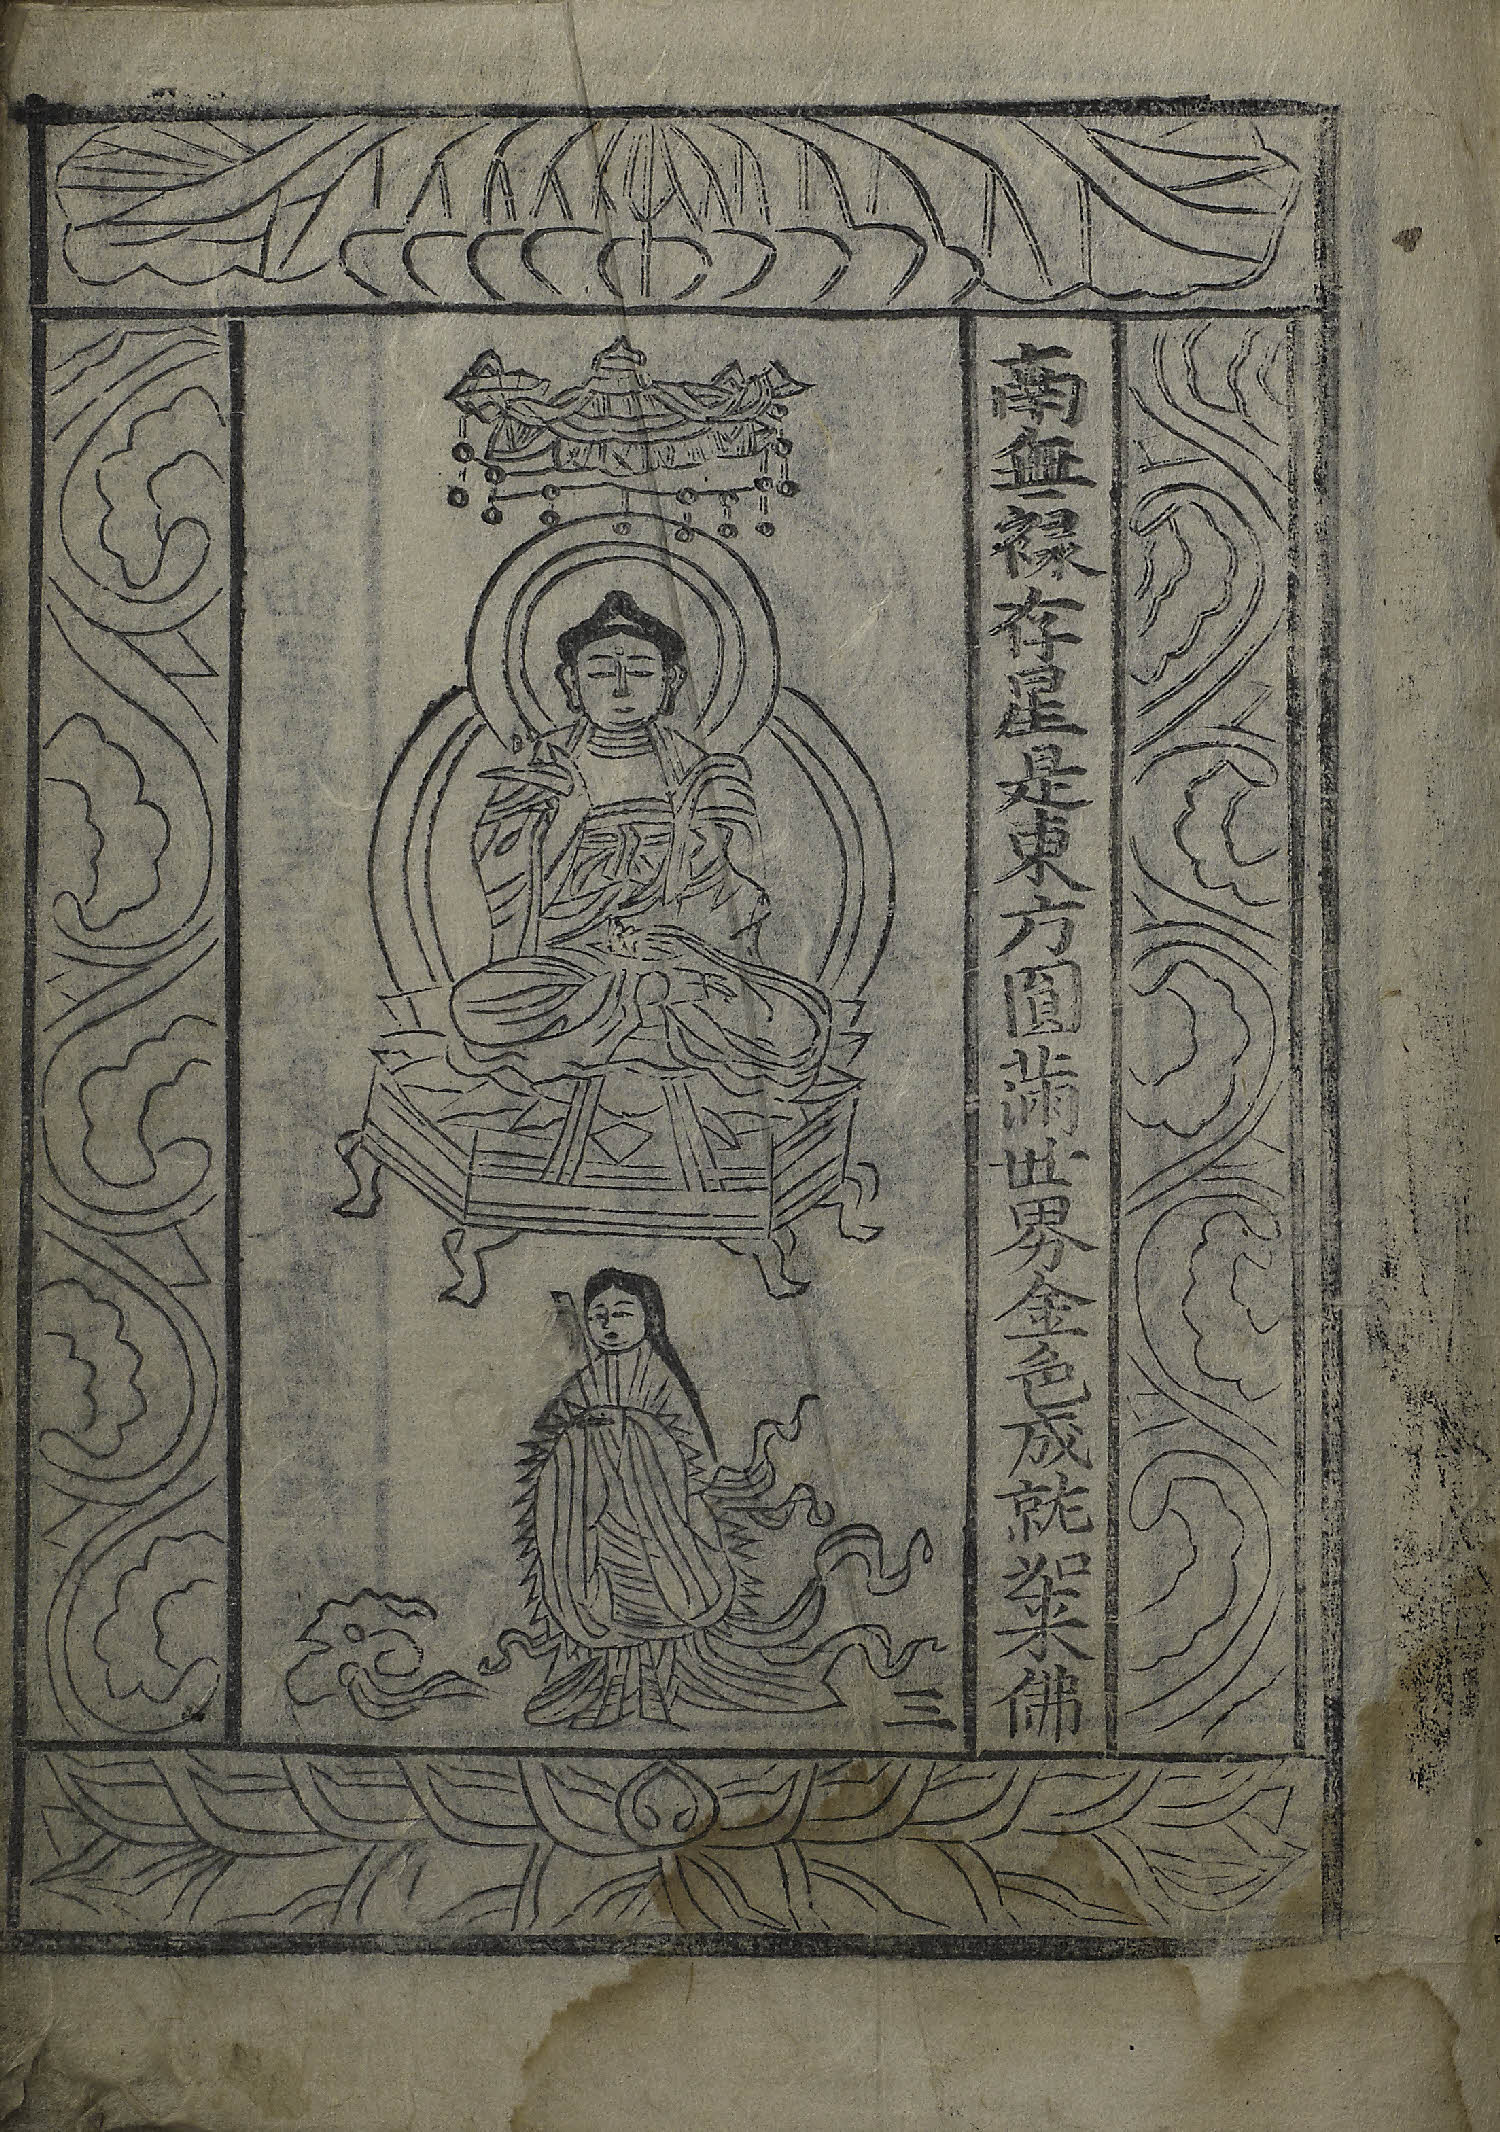 南無祿存星是東方圓滿世界金色成就如來佛
三